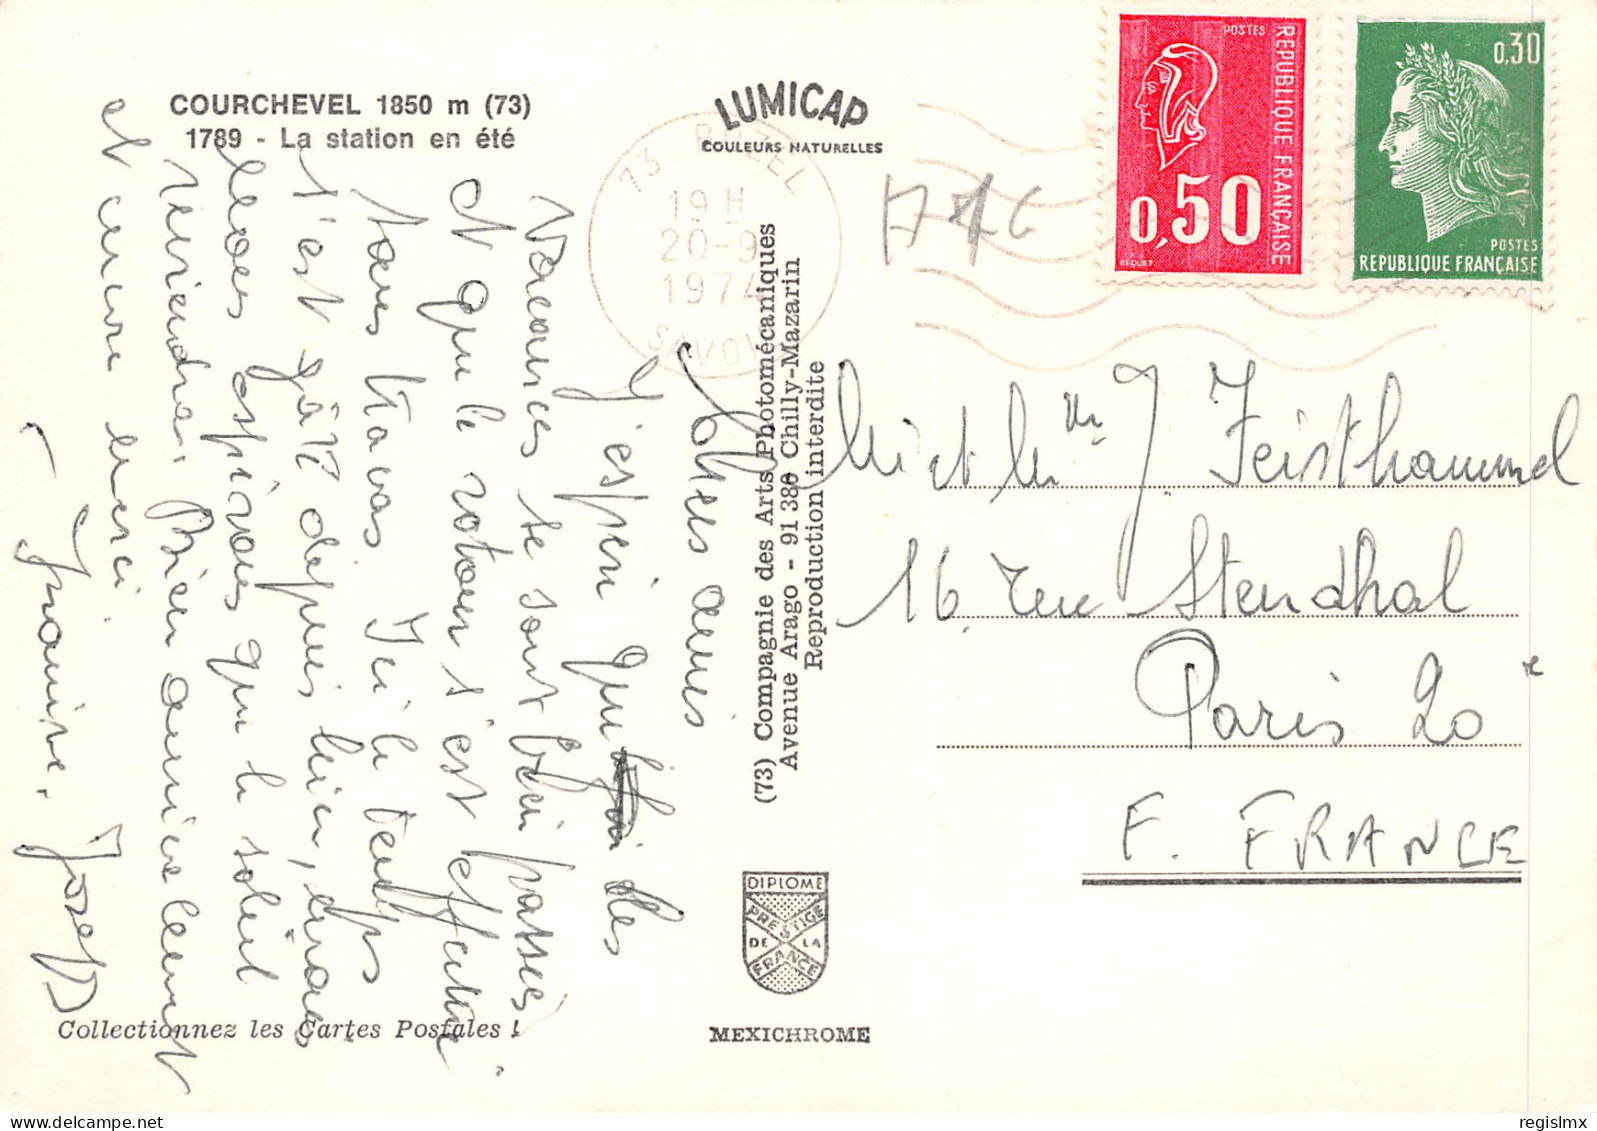 COURCHEVEL 1850 m (73)
1789 - La station en été
LUMICAP
COULEURS NATURELLES
73 BOZEL
19 H
20-9
1974
SAVOIE
POSTES
REPUBLIQUE FRANÇAISE
0,50
BEQUET
0,30
POSTES
REPUBLIQUE FRANÇAISE
Chers amis
J'espère que les
vacances se sont bien passées
et que le retour s'est effectué
sans tracas. Ici le temps
s'est gâté depuis hier, mais
nous espérons que le soleil
reviendra. Bien amicalement
et encore merci.
Josef
(73) Compagnie des Arts Photomécaniques
Avenue Arago - 91 380 Chilly-Mazarin
Reproduction interdite
Mr et Mme J. Feisthammel
16, rue Stendhal
Paris 20e
F. FRANCE
DIPLOME
PRESTIGE
DE LA
FRANCE
Collectionnez les Cartes Postales !
MEXICHROME
regislmx